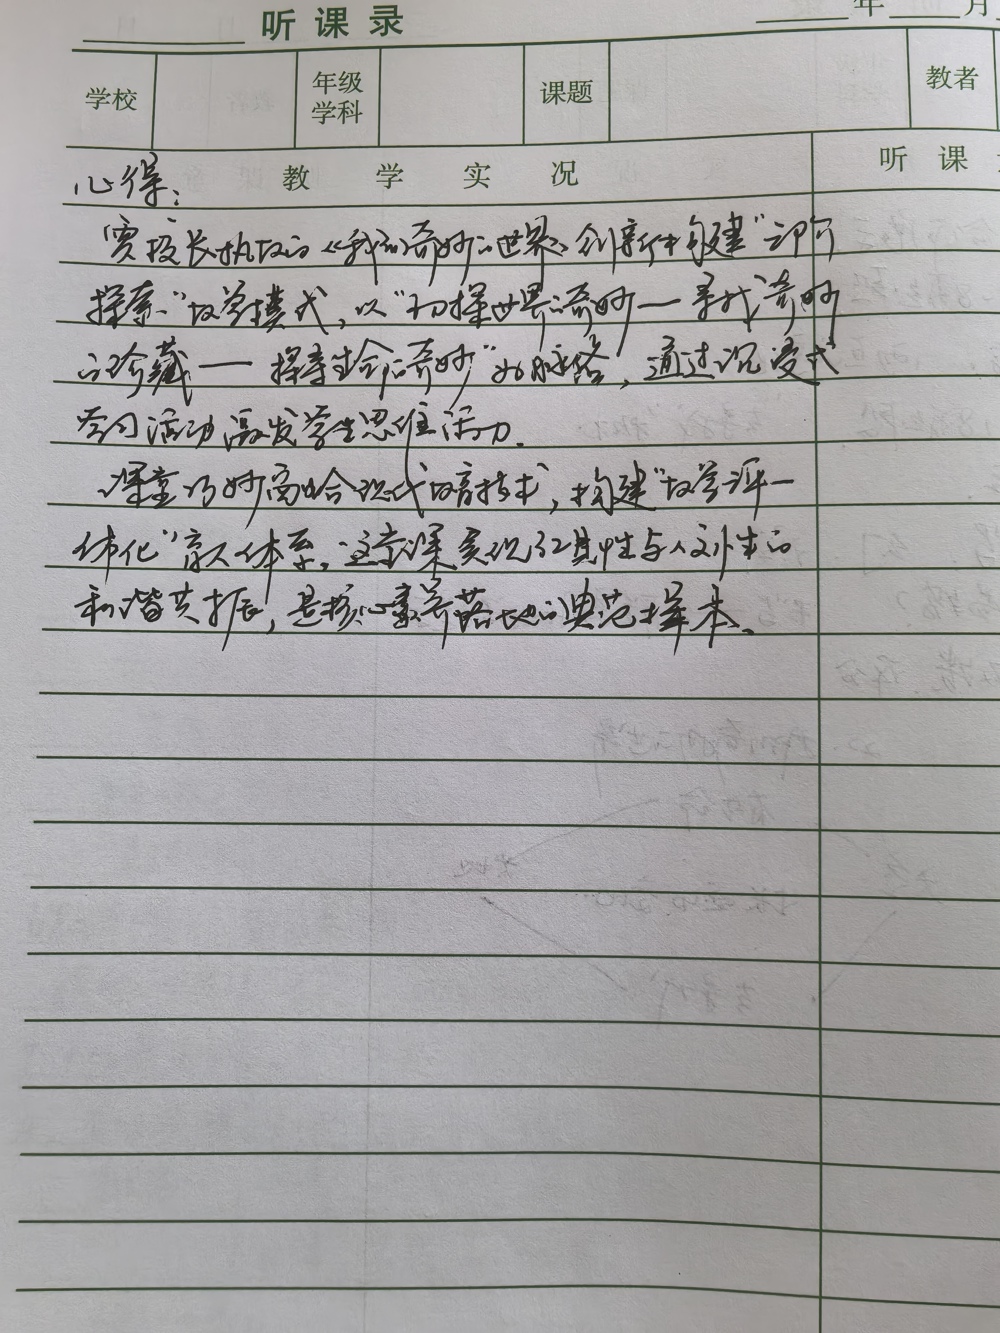 听课录 年 月
学校 年级学科 课题 教者
教学实况 听课
心得：
贾校长执教的《我们奇妙的世界》创新性构建“三阶
探索”教学模式，以“初探世界的奇妙——寻找奇妙
的珍藏——探寻生命的奇妙”为脉络，通过沉浸式
学习活动激发学生思维活力。
课堂巧妙融合现代教育技术，构建“教学评一
体化”育人体系。这堂课实现工具性与人文性的
和谐共振，是核心素养落地的典范样本。